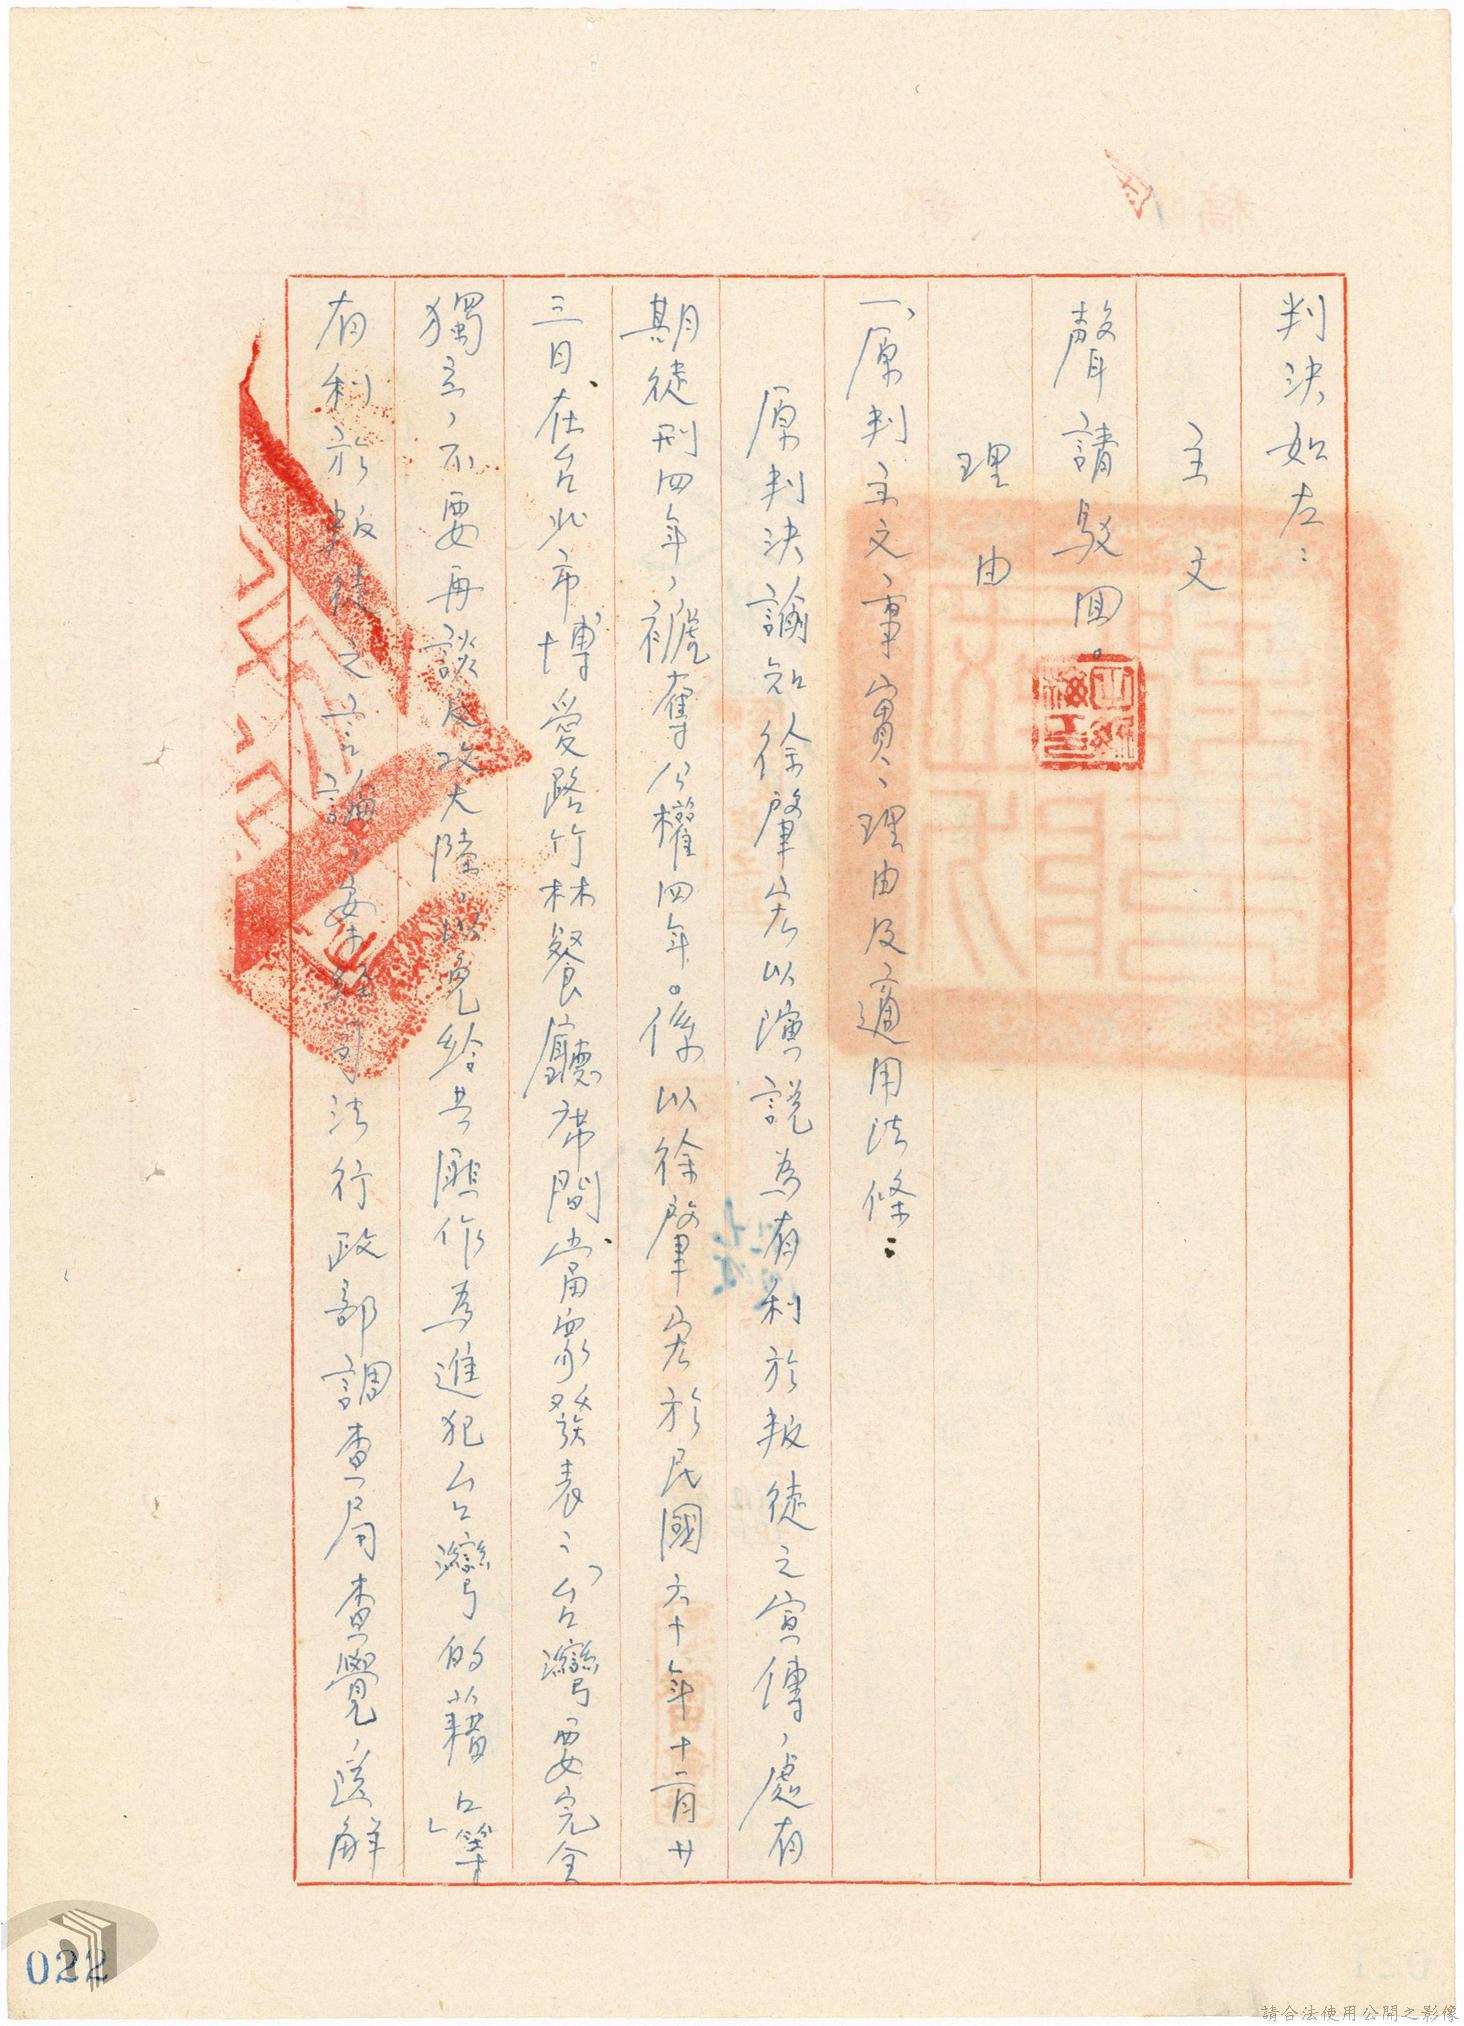 判決如左：
主文
聲請駁回。
理由
一、原判主文、事實、理由及適用法條：
原判決諭知徐肇宏以演說為有利於叛徒之宣傳，處有
期徒刑四年，褫奪公權四年。係以徐肇宏於民國六十年十二月廿
三日在台北市博愛路竹林餐廳席間當眾發表：「台灣要完全
獨立，不要再談反攻大陸，以免給共匪作為進犯台灣的藉口」等
有利於叛徒之言論，案經司法行政部調查局查覺，送解
022
請合法使用公開之影像